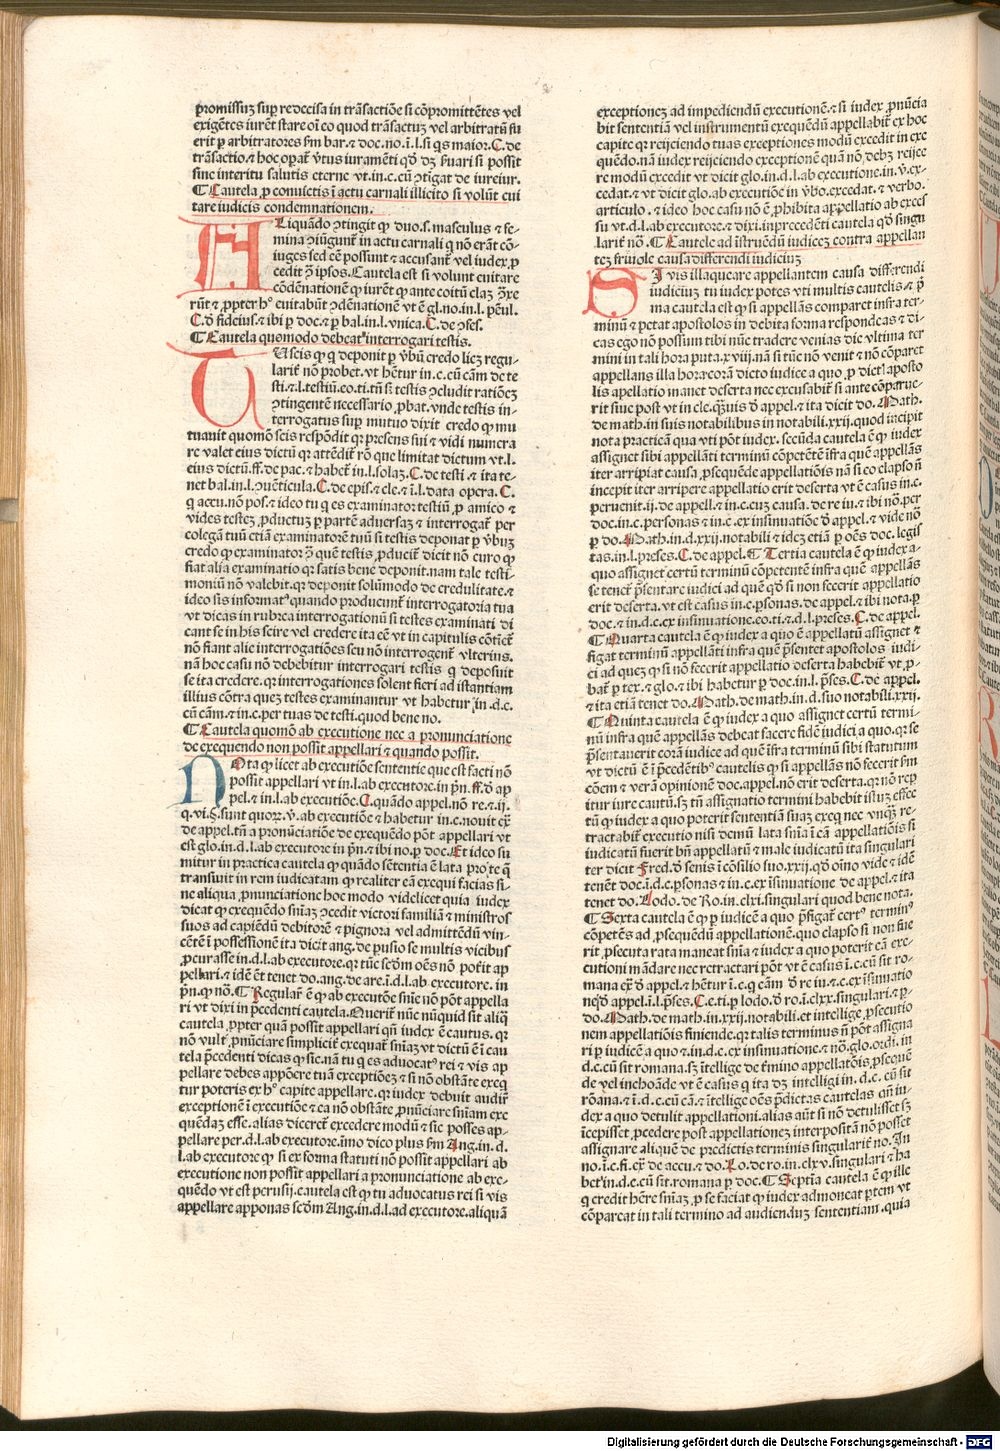 promissuз sup̲ re decisa in trãsactiõe si cõpromittẽtes vel
exigẽtes iurẽt stare oĩ eo quod trãsactuз vel arbitratũ fu
erit p̲ arbitratores fm bar.⁊ doc.no.ĩ.l.si q̃s maior.C.de
trãsactio.⁊ hoc op̲at᷑
sine interitu salutis eterne vt.in.c.cũ ↄtĩgat de iureiur.
¶ Cautela p̲ conuictis ĩ actu carnali illicito si volũt eui
tare iudicis condemnationem.
ALiquãdo ↄtingit ꝙ duo.s.masculus ⁊ fe-
mina ↄiũgunt᷑ in actu carnali q̃ nõ erãt cõ-
iuges sed eẽ possunt ⁊ accusant᷑ vel iudex ꝓ
cedit ↄ̃ ipsos.Cautela est si volunt euitare
cõdẽnationẽ ꝙ iurẽt ꝙ ante coitũ
rũt ⁊ ꝓpter hꝰ euitabũt ↄdẽnationẽ vt ẽ gl.no.in.l.pẽul.
C.ð fideius.⁊ ibi p̲ doc.⁊ p̲ bal.in.l.vnica.C.de ↄfes.
¶ Cautela quomodo debeat interrogari testis.
TU scis ꝙ q̃ deponit p̲ v̾bũ credo licз regu-
larit᷑ nõ probet.vt hẽtur in.c.cũ cãm de te
sti.⁊.l.testiũ.eo.ti.tũ si testis ↄcludit ratiõeз
ↄtingentẽ necessario ꝓbat.vnde testis in-
terrogatus sup̲ mutuo dixit credo ꝙ mu
tuauit quomõ scis respõdit qꝛ presens fui ⁊ vidi numera
re valet eius dictũ qꝛ attẽdit᷑ rõ que limitat dictum vt.l.
eius dictũ.ff.de pac.⁊ habet᷑ in.l.solaз.C.de testi.⁊ ita te-
net bal.in.l.ↄuẽticula.C.de epis.⁊ cle.⁊ ĩ.l.data opera.C.
q̃ accu.nõ pos.⁊ ideo tu q̃ es examinator testiũ ꝓ amico ⁊
vides testeз ꝓductuз p̲ partẽ aduersaз ⁊ interrogat᷑ per
colegã tuũ etiã examinatorẽ tuũ si testis deponat p̲ v̾buз
credo ꝙ examinator ↄ̃ quẽ testis ꝓducit᷑ dicit nõ curo ꝙ
fiat alia examinatio qꝛ satis bene deponit.nam tale testi-
moniũ nõ valebit.qꝛ deponit solũmodo de credulitate.⁊
ideo sis informatꝰ quando producunt᷑ interrogatoria tua
vt dicas in rubrica interrogationũ si testes examinati di
cant se in his scire vel credere ita eẽ vt in capitulis cõtiet᷑
nõ fiant alie interrogatiões seu nõ interrogent᷑ vlterius.
nã hoc casu nõ debebitur interrogari testis q̃ deposuit
se ita credere.qꝛ interrogationes solent fieri ad istantiam
illius cõtra queз testes examinantur vt habetur in.d.c.
cũ cãm.⁊ in.c.per tuas de testi.quod bene no.
¶ Cautela quomõ ab executione nec a pronunciatione
de exequendo non possit appellari ⁊ quando possit.
NOta ꝙ licet ab executiõe sententie que est facti nõ
possit appellari vt in.l.ab executore.in p̃n.ff.ð ap
pel.⁊ in.l.ab executiõe.C.quãdo appel.nõ re.⁊.ij.
q.vi.§.sunt quoꝛ.v̾.ab executiõe ⁊ habetur in.c.nouit ex̃
de appel.tñ a pronũciatiõe de exequẽdo põt appellari vt
est glo.in.d.l.ab executore in p̃n.⁊ ibi no.p̲ doc.Et ideo su
mitur in practica cautela ꝙ quãdo sẽtentia ẽ lata pro te q̃
transiuit in rem iudicatam ꝙ realiter eã exequi facias si-
ne aliqua ꝓnunciatione hoc modo videlicet quia iudex
dicat ꝙ exequẽdo sñiaз ↄcedit victori familiã ⁊ ministros
suos ad capiẽdũ debitorẽ ⁊ pignora vel admittẽdũ vin-
cẽtẽ ĩ possessionẽ ita dicit ang.de pusio se multis vicibus
ꝓcurasse in.d.l.ab executore.qꝛ tũc fcðm oẽs nõ potĩt ap
pellari.⁊ idẽ ẽt tenet do.ang.de are.ĩ.d.l.ab executore.in
p̃n.ꝙ nõ.¶ Regularĩ ẽ ꝙ ab executõe sñie nõ põt appella
ri vt dixi in p̃cedenti cautela.Querit᷑ nũc nũquid sit aliq̃
cautela ꝓpter quã possit appellari qñ iudex ẽ cautus.qꝛ
nõ vult ꝓnũciare simplicit᷑ exequat᷑ sñiaз vt dictũ ẽ ĩ cau
tela p̃cedenti dicas ꝙ sic.nã tu q̃ es aduocatꝰ rei ⁊ vis ap
pellare debes appõere tuã exceptiõeз ⁊ si nõ obstãte exeq̃
tur poteris ex hꝰ capite appellare.qꝛ iudex debuit audir᷑
exceptionẽ ĩ executiõe ⁊ ea nõ obstãte ꝓnũciare sñiam exe
quẽdaз esse.alias diceret᷑ excedere modũ ⁊ sic posses ap-
pellare per.d.l.ab executore.ĩmo dico plus fm Ang.in.d.
l.ab executore ꝙ si ex forma statuti nõ possit appellari ab
executione non possit appellari a pronunciatione ab exe-
quẽdo vt est perusij.cautela est ꝙ tu aduocatus rei si vis
appellare apponas fcðm Ang.in.d.l.ad executore.aliquã
exceptioneз ad impediendũ executionẽ.⁊ si iudex ꝓnũcia
bit sententiã vel instrumentũ exequẽdũ appellabit᷑ ex hoc
capite qꝛ reijciendo tuas exceptiones modũ excedit in exe
quẽdo.nã iudex reijciendo exceptionẽ quã nõ debз reijce
re modũ excedit vt dicit glo.in.d.l.ab executione.in.v̾.ex-
cedat.⁊ vt dicit glo.ab executiõe in v̾bo.excedat.⁊ verbo.
articulo.⁊ ideo hoc casu nõ ẽ ꝓhibita appellatio ab exces
su vt.d.l.ab executore.⁊ dixi.in precedẽti cautela qð singu
larit᷑ nõ.¶ Cautele ad ĩstruẽdũ iudiceз contra appellan
teз friuole causa differendi iudiciuз
SI vis illaqueare appellantem causa differendi
iudiciuз tu iudex potes vti multis cautelis ⁊ p̃
ma cautela est ꝙ si appellãs comparet infra ter-
minũ ⁊ petat apostolos in debita forma respondeas ⁊ di-
cas ego nõ possum tibi nũc tradere venias die vltima ter
mini in tali hora puta.xviij.nã si tũc nõ venit ⁊ nõ cõparet
appellans illa hora corã dicto iudice a quo ꝓ dict appsto
lis apellatio manet deserta nec excusabit᷑ si ante cõparue-
rit siue post vt in cle.q̃uis ð appel.⁊ ita dicit do.Math.
de math.in suis notabilibus in notabili.xxij.quod incipit
nota practicã qua vti põt iudex.secũda cautela ẽ ꝙ iudex
assignet sibi appellãti terminũ cõpetẽtẽ ĩfra quẽ appellãs
iter arripiat causa ꝓsequẽde appellatiõis nã si eo elapso ñ
incepit iter arripere appellatio erit deserta vt ẽ casus in.c.
peruenit.ij.de appell.⁊ in.c.cuз causa.de re iu.⁊ ibi nõ.per
doc.in.c.personas ⁊ in.c.ex insinuatiõe ð appel.⁊ vide nõ
p̲ do.Math.in.d.xxij.notabili ⁊ ideз etiã p̲ oẽs doc.legis
tas.in.l.p̲ses.C.de appel.¶ Tertia cautela ẽ ꝙ iudex a-
quo assignet certũ terminũ cõpetentẽ infra quẽ appellãs
se tenet᷑ p̃sentare iudici ad quẽ qð si non fecerit appellatio
erit deserta.vt est casus in.c.p̲sonas.de appel.⁊ ibi nota.p̲
doc.⁊ in.d.c.ex insinuatione.eo.ti.⁊.d.l.p̲ses.C.de appel.
¶ Quarta cautela ẽ ꝙ iudex a quo ẽ appellatũ assignet ⁊
figat terminũ appellãti infra quẽ p̃sentet apostolos iudi-
ci ad queз ꝙ si nõ fecerit appellatio deserta habebit᷑ vt ꝓ-
bat᷑ p̲ tex.⁊ glo.⁊ ibi habetur p̲ doc.in.l.p̃ses.C.de appel.
⁊ ita etiã tenet do.Math.de math.in.d.suo notabili.xxij.
¶ Quinta cautela ẽ ꝙ iudex a quo assignet certũ termi-
nũ infra quẽ appellãs debeat facere fidẽ iudici a quo.qꝛ se
p̃sentauerit corã iudice ad quẽ ĩfra terminũ sibi statutum
vt dictũ ẽ ĩ p̃cedẽtibꝰ cautelis ꝙ si appellãs nõ fecerit fm
cõem ⁊ verã opinionẽ doc.appel.nõ erit deserta.qꝛ nõ rep̲
itur iure cautũ.sз tñ assignatio termini habebit istuз effcẽ
tũ ꝙ iudex a quo poterit sententiã suaз exeq̃ nec vnq̃з re-
tractabit᷑ executio nisi demũ lata sñia ĩ cã appellatiõis si
iudicatũ fuerit bñ appellatũ ⁊ male iudicatũ ita singulari
ter dicit Fred.ð senis ĩ cõsilio suo.xxij.qð oĩno vide ⁊ idẽ
tenẽt doc.ĩ.d.c.p̲sonas ⁊ in.c.ex ĩsinuatione de appel.⁊ ita
tenet do.Lodo.de Ro.in.clxi.singulari quod bene nota.
¶ Sexta cautela ẽ ꝙ p̲ iudicẽ a quo p̃figat᷑ certꝰ terminꝰ
cõpetẽs ad ꝓsequẽdũ appellationẽ.quo elapso si non fue
rit ꝓsecuta rata maneat sñia ⁊ iudex a quo poterit eã exe-
cutioni mãdare nec retractari põt vt ẽ casus ĩ.c.cũ sit ro-
mana ex̃ ð appel.⁊ hẽtur ĩ.c.q̃ cãm ð re iu.⁊.c.ex ĩsinuatio
neq̃ð appel.ĩ.l.p̃ses.C.e.ti.p̲ lodo.ð ro.ĩ.clxx.singulari ⁊ p̲-
do.Math.de math.in.xxij.notabili.et intellige ꝓsecutio
nem appellatiõis finiende.qꝛ talis terminus ñ põt assigna
ri p̲ iudicẽ a quo ⁊.in.d.c.ex insinuatione.⁊ nõ.glo.ordi.in
d.c.cũ sit romana.sз ĩtellige de t̾mino appellatõis ꝓsequẽ
de vel inchoãde vt ẽ casus q̃ ita dз intelligi in.d.c.cũ sit
rõana.⁊ ĩ.d.c.cũ cã.⁊ ĩtellige oẽs p̃dictas cautelas qñ iu-
dex a quo detulit appellationi.alias aũt si nõ detulisset sз
ĩcepisset ꝓcedere post appellationeз interpositã nõ posset
assignare aliquẽ de predictis terminis singularit᷑ no.Jn
no.ĩ.c.fi.ex̃ de accu.⁊ do.Lo.de ro.in.clxv.singulari ⁊ ha
bet᷑ in.d.c.cũ sit.romana p̲ doc.¶ Septĩa cautela ẽ ꝙ ille
q̃ credit hẽre sñiaз ꝓ se faciat ꝙ iudex admoneat p̲tem vt
cõpareat in tali termino ad audienduз sententiam.quia
Digitalisierung gefördert durch die Deutsche Forschungsgemeinschaft - DFG